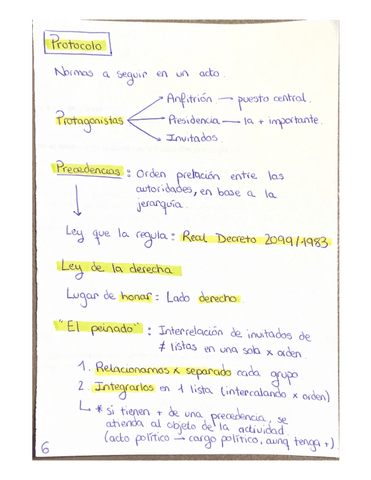 Protocolo
Normas a seguir en un acto.
Anfitrión → puesto central.
Protagonistas → Presidencia → la + importante.
Invitados
Precedencias: Orden prelación entre las
autoridades, en base a la
jerarquía.
Ley que la regula: Real Decreto 2099/1983
Ley de la derecha
Lugar de honor: Lado derecho.
"El peinado": Interrelación de invitados de
≠ listas en una sola x orden
1. Relacionamos x separado cada grupo
2. Integrarlos en 1 lista (intercalando x orden)
↳ * si tienen + de una precedencia, se
atienda al objeto de la actividad.
(acto político → cargo político, aunq tenga +)
6